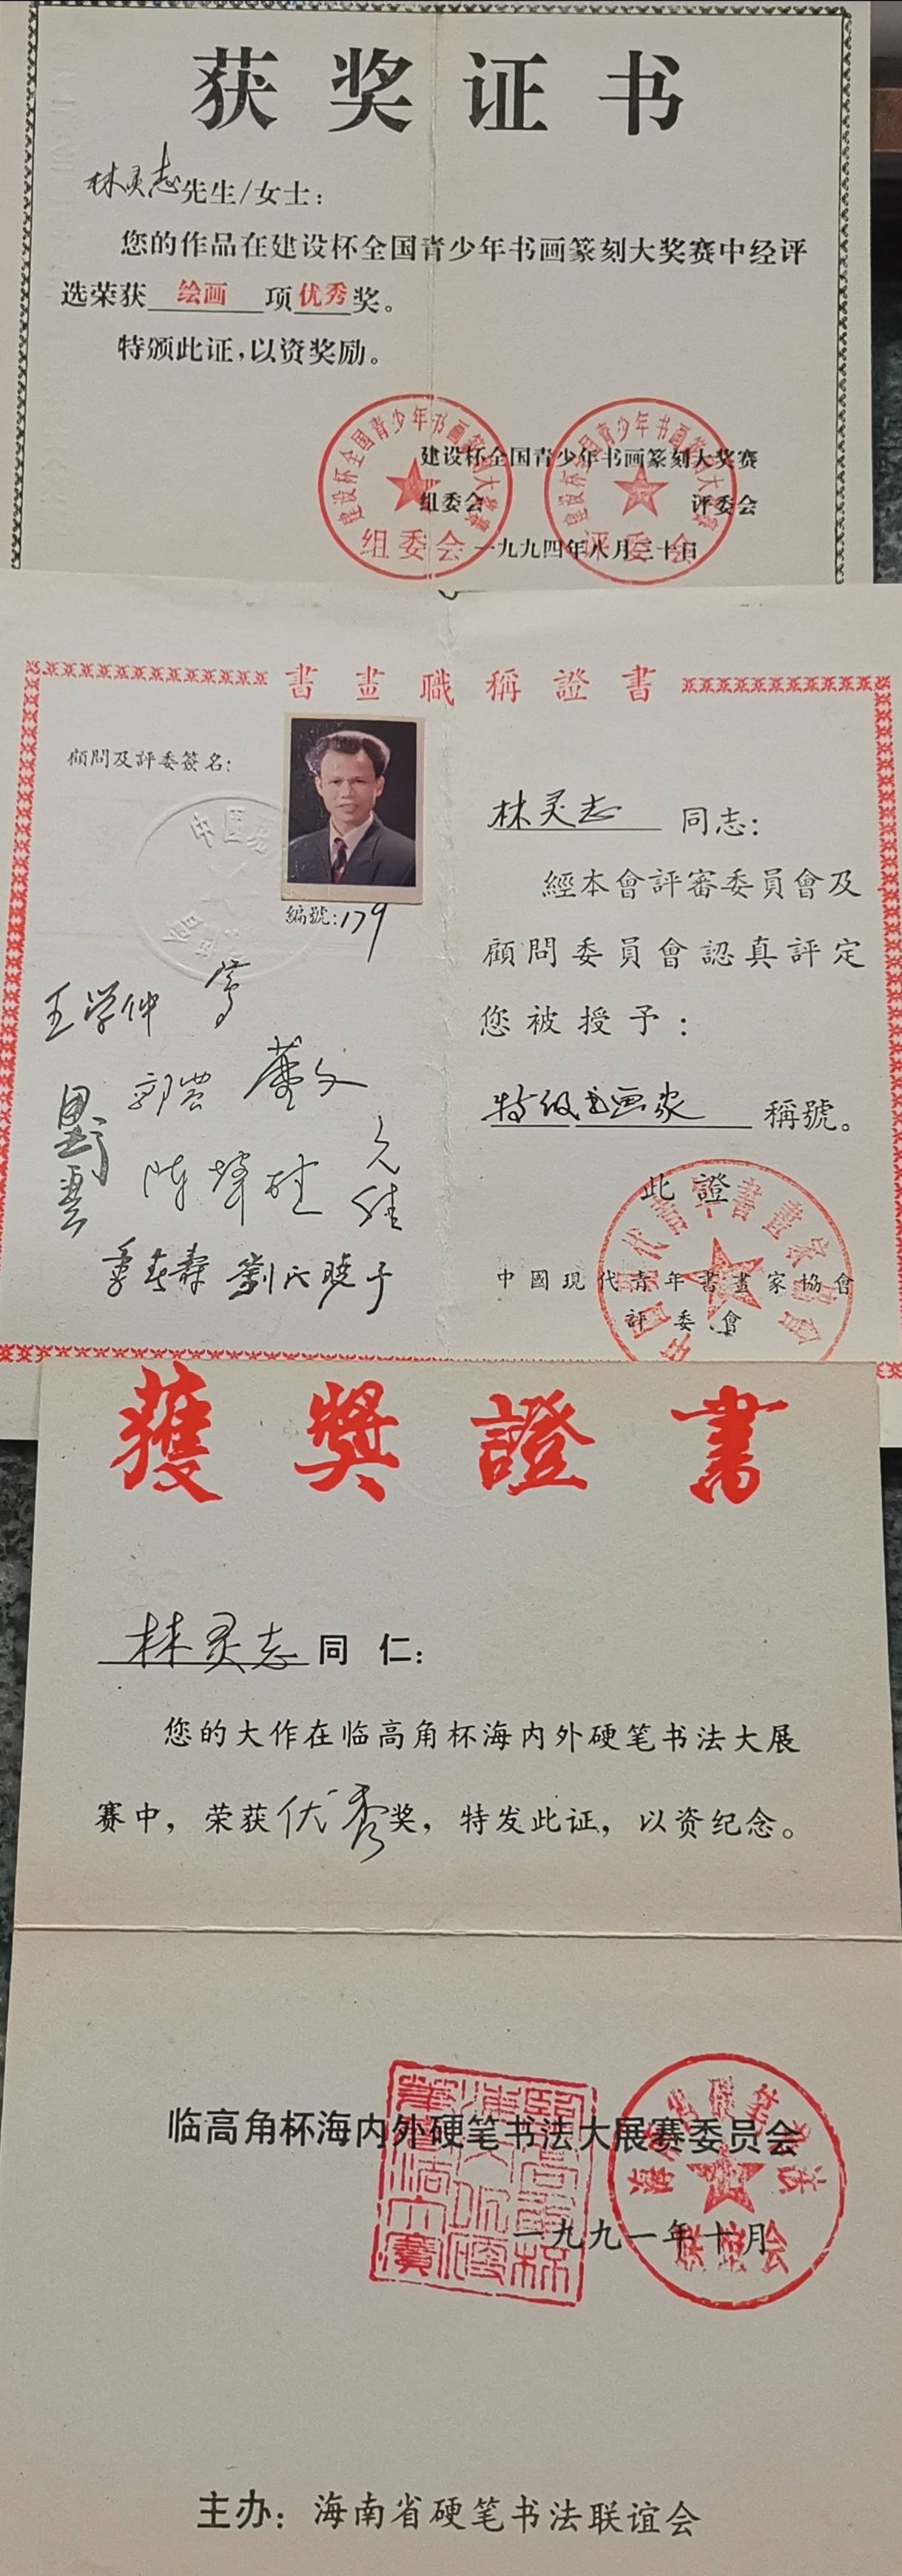 获奖证书
林灵志先生/女士：
您的作品在建设杯全国青少年书画篆刻大奖赛中经评
选荣获 绘画 项 优秀 奖。
特颁此证，以资奖励。
建设杯全国青少年书画篆刻大奖赛
组委会 评委会
一九九四年八月三十日
组委会
评委会
書畫職稱證書
顧問及評委簽名：
編號：179
王学仲
陈
林灵志 同志：
經本會評審委員會及
顧問委員會認真評定
您被授予：
特级书画家 稱號。
此證
中國現代青年書畫家協會
評委會
獲獎證書
林灵志 同仁：
您的大作在临高角杯海内外硬笔书法大展
赛中，荣获优秀奖，特发此证，以资纪念。
临高角杯海内外硬笔书法大展赛委员会
一九九一年十月
联谊会
主办：海南省硬笔书法联谊会